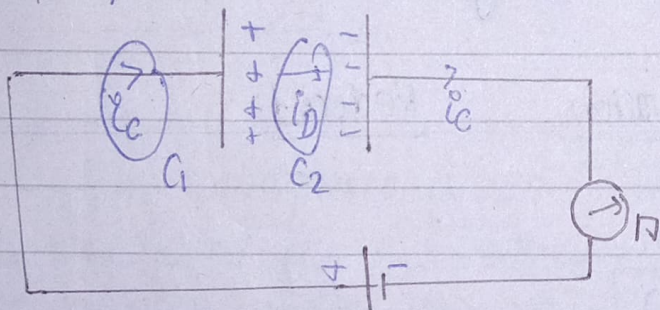 + -
+ -
i_C + i_D - i_C
+ -
C₁ C₂
A
+ -